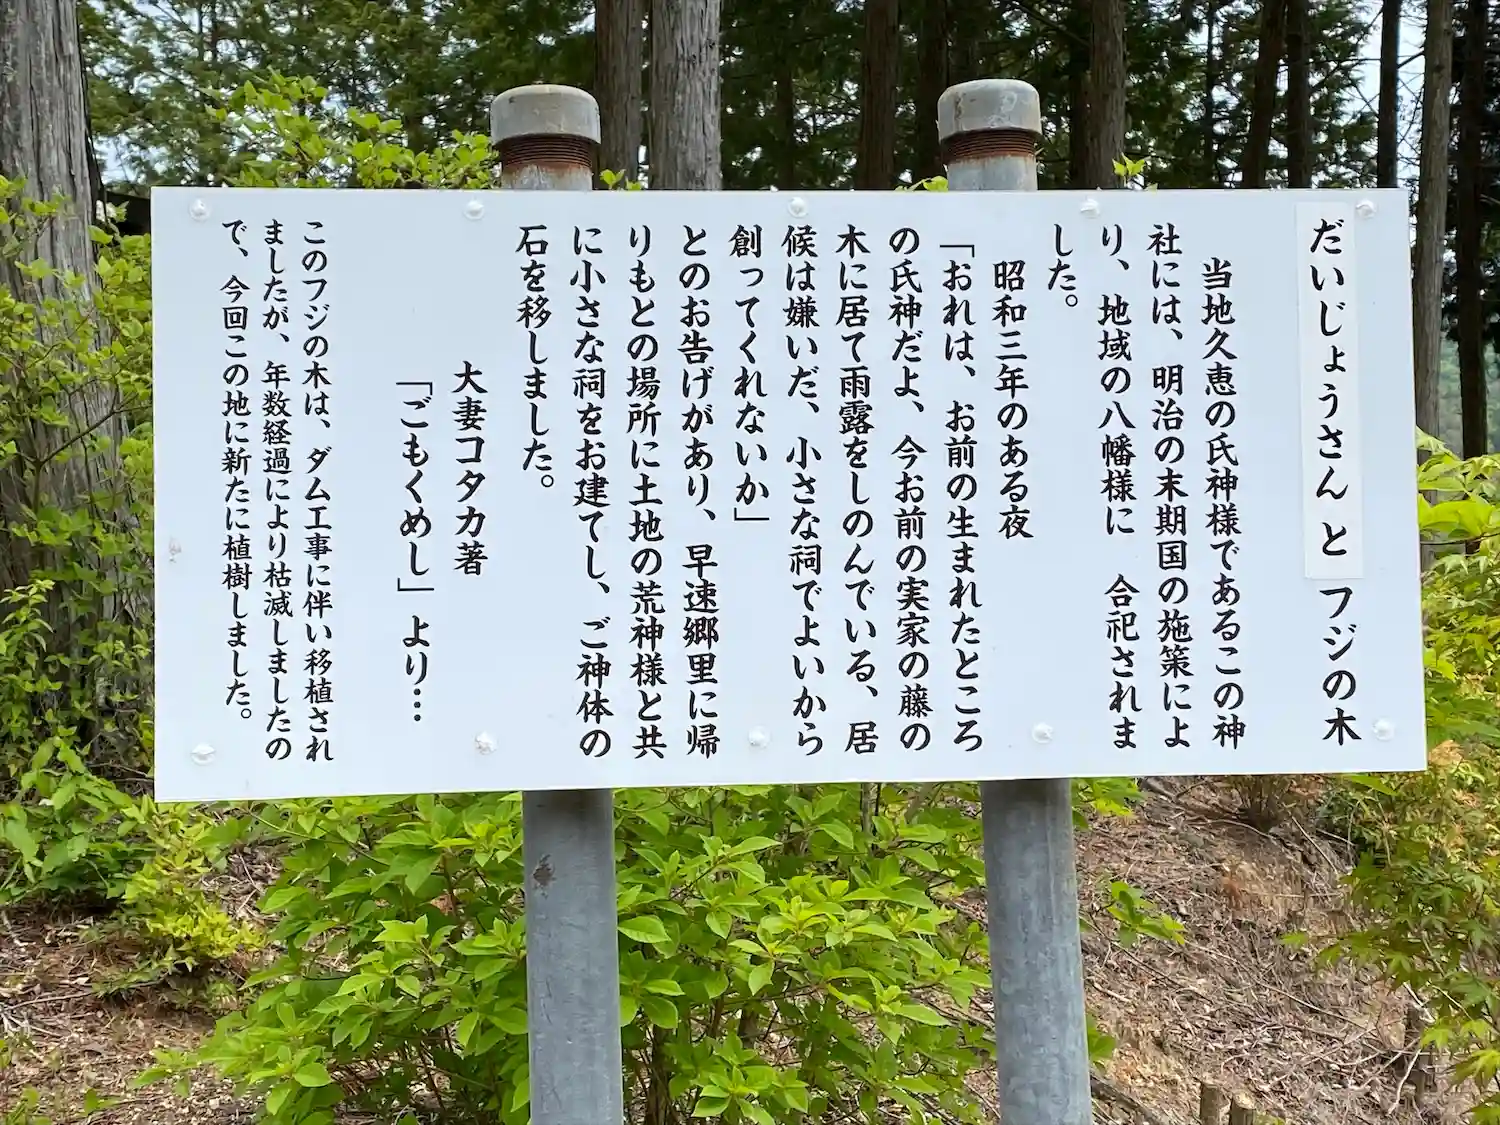 だいじょうさん と フジの木
当地久恵の氏神様であるこの神
社には、明治の末期国の施策によ
り、地域の八幡様に　合祀されま
した。
昭和三年のある夜
「おれは、お前の生まれたところ
の氏神だよ、今お前の実家の藤の
木に居て雨露をしのんでいる、居
候は嫌いだ、小さな祠でよいから
創ってくれないか」
とのお告げがあり、早速郷里に帰
りもとの場所に土地の荒神様と共
に小さな祠をお建てし、ご神体の
石を移しました。
大妻コタカ著
「ごもくめし」より…
このフジの木は、ダム工事に伴い移植され
ましたが、年数経過により枯滅しましたの
で、今回この地に新たに植樹しました。